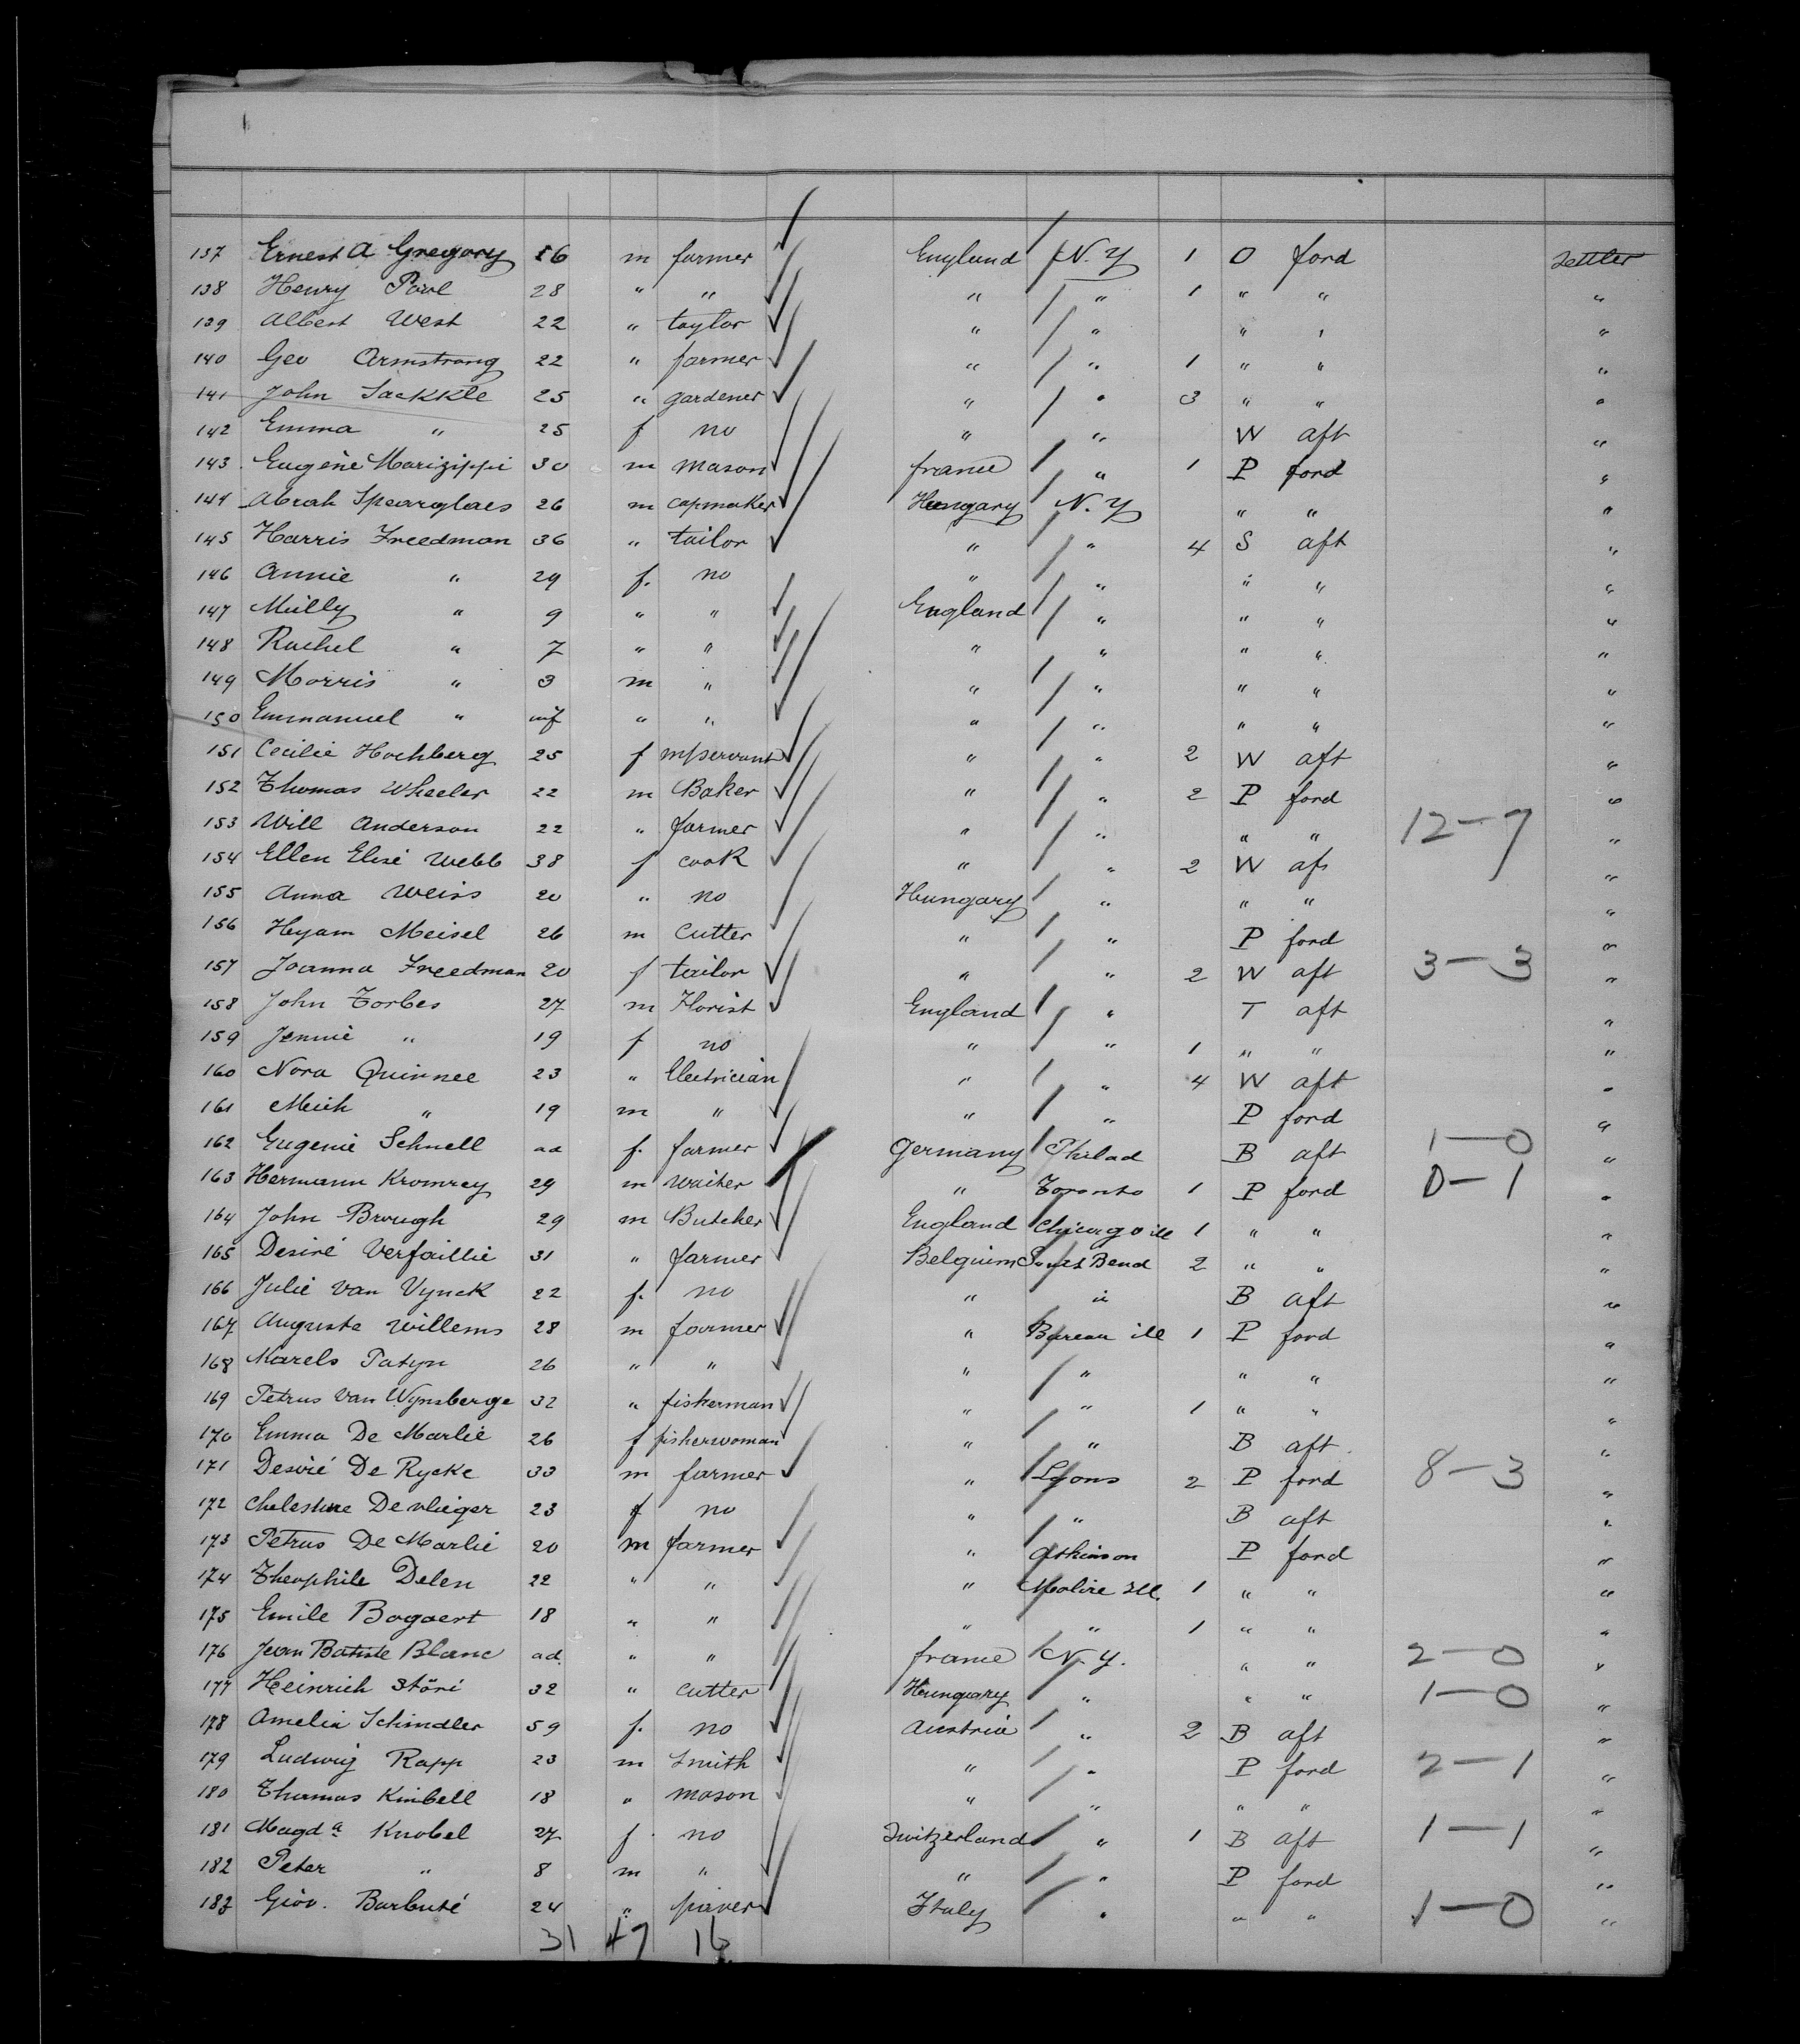 137 Ernest A Gregory 26 m farmer England N.Y 1 O ford Settler
138 Henry Pavl 28 " " " " 1 " " "
139 Albert West 22 " taylor " " " " "
140 Geo Armstrong 22 " farmer " " 1 " " "
141 John Sackkle 25 " gardener " " 3 " " "
142 Emma " 25 f no " " W aft "
143 Eugène Marizippi 30 m mason france " 1 P ford "
144 Abrah Spearglaes 26 m capmaker Hungary N.Y " " "
145 Harris Freedman 36 " tailor " " 4 S aft "
146 Annie " 29 f. no " " " " "
147 Milly " 9 " " England " " " "
148 Rachel " 7 " " " " " " "
149 Morris " 3 m " " " " " "
150 Emmanuel " inf " " " " " " "
151 Cecilie Hochberg 25 f servant " " 2 W aft "
152 Thomas Wheeler 22 m Baker " " 2 P ford "
153 Will Anderson 22 " farmer " " " " 12-7 "
154 Ellen Elisé Webb 38 f cook " " 2 W aft "
155 Anna Weiss 20 " no Hungary " " " "
156 Hyam Meisel 26 m Cutter " " P ford "
157 Joanna Freedman 20 f tailor " " 2 W aft 3-3 "
158 John Forbes 27 m Florist England " T aft "
159 Jennie " 19 f no " " 1 " " "
160 Nora Quinnee 23 " Electrician " " 4 W aft "
161 Mich " 19 m " " " P ford "
162 Eugenie Schnell ad f. farmer Germany Philad B aft 1-0 "
163 Hermann Kromrey 29 m waiter " Toronto 1 P ford 0-1 "
164 John Brough 29 m Butcher England Chicago ill 1 " " "
165 Desiré Verfaillie 31 " farmer Belgium South Bend 2 " " "
166 Julie Van Vynck 22 f. no " " B aft "
167 Augusta Willems 28 m farmer " Bureau ill 1 P ford "
168 Karels Patyn 26 " " " " " " "
169 Petrus Van Wynsberge 32 " fisherman " " 1 " " "
170 Emma De Marlie 26 f fisherwoman " " B aft "
171 Desiré De Rycke 33 m farmer " Lyons 2 P ford 8-3 "
172 Chelestine Devlieger 23 f no " " B aft "
173 Petrus De Marlie 20 m farmer " Atkinson P ford "
174 Theophile Delen 22 " " " Moline Ill. 1 " " "
175 Emile Bogaert 18 " " " " 1 " " "
176 Jean Batiste Blanc ad. " " france N.Y. " " 2-0 "
177 Heinrich Störi 32 " cutter Hungary " " " 1-0 "
178 Amelia Schindler 59 f. no Austria " 2 B aft "
179 Ludwig Rapp 23 m Smith " " P ford 2-1 "
180 Thomas Kimbell 18 " mason " " " " "
181 Magda Knobel 27 f. no Switzerland " 1 B aft 1-1 "
182 Peter " 8 m " " " P ford "
183 Giov. Barbuté 24 " Italy " " " 1-0 "
31 47 16